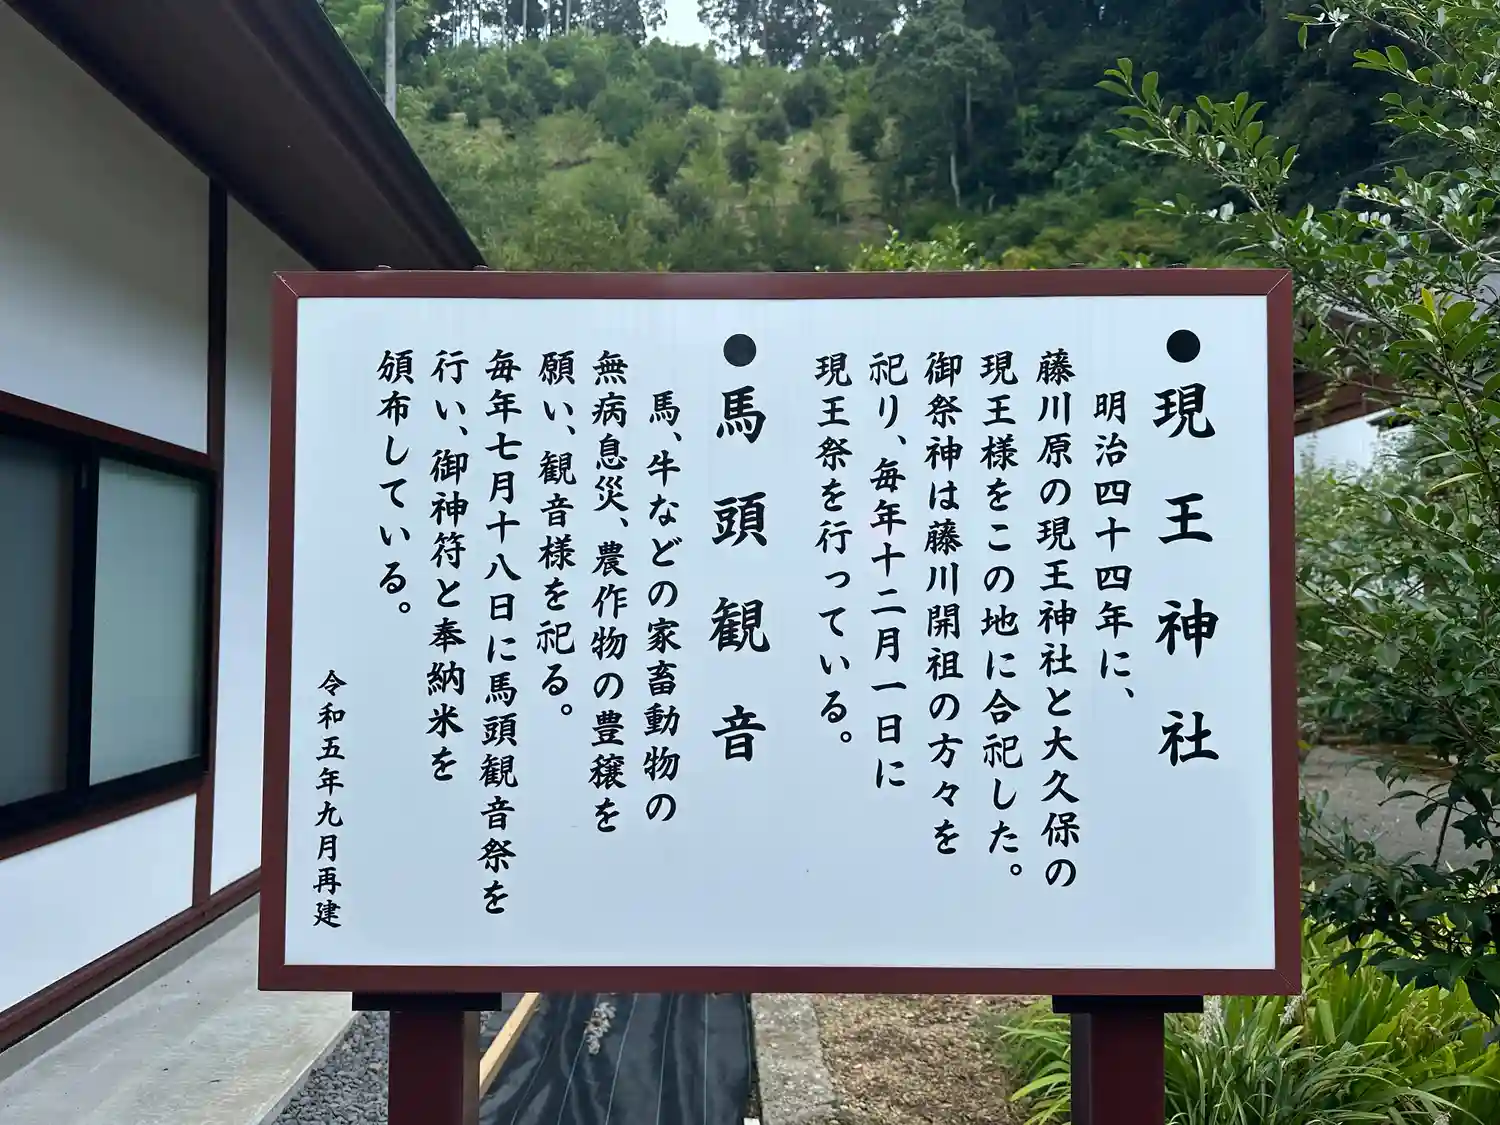 ●現王神社
明治四十四年に、
藤川原の現王神社と大久保の
現王様をこの地に合祀した。
御祭神は藤川開祖の方々を
祀り、毎年十二月一日に
現王祭を行っている。
●馬頭観音
馬、牛などの家畜動物の
無病息災、農作物の豊穣を
願い、観音様を祀る。
毎年七月十八日に馬頭観音祭を
行い、御神符と奉納米を
頒布している。
令和五年九月再建